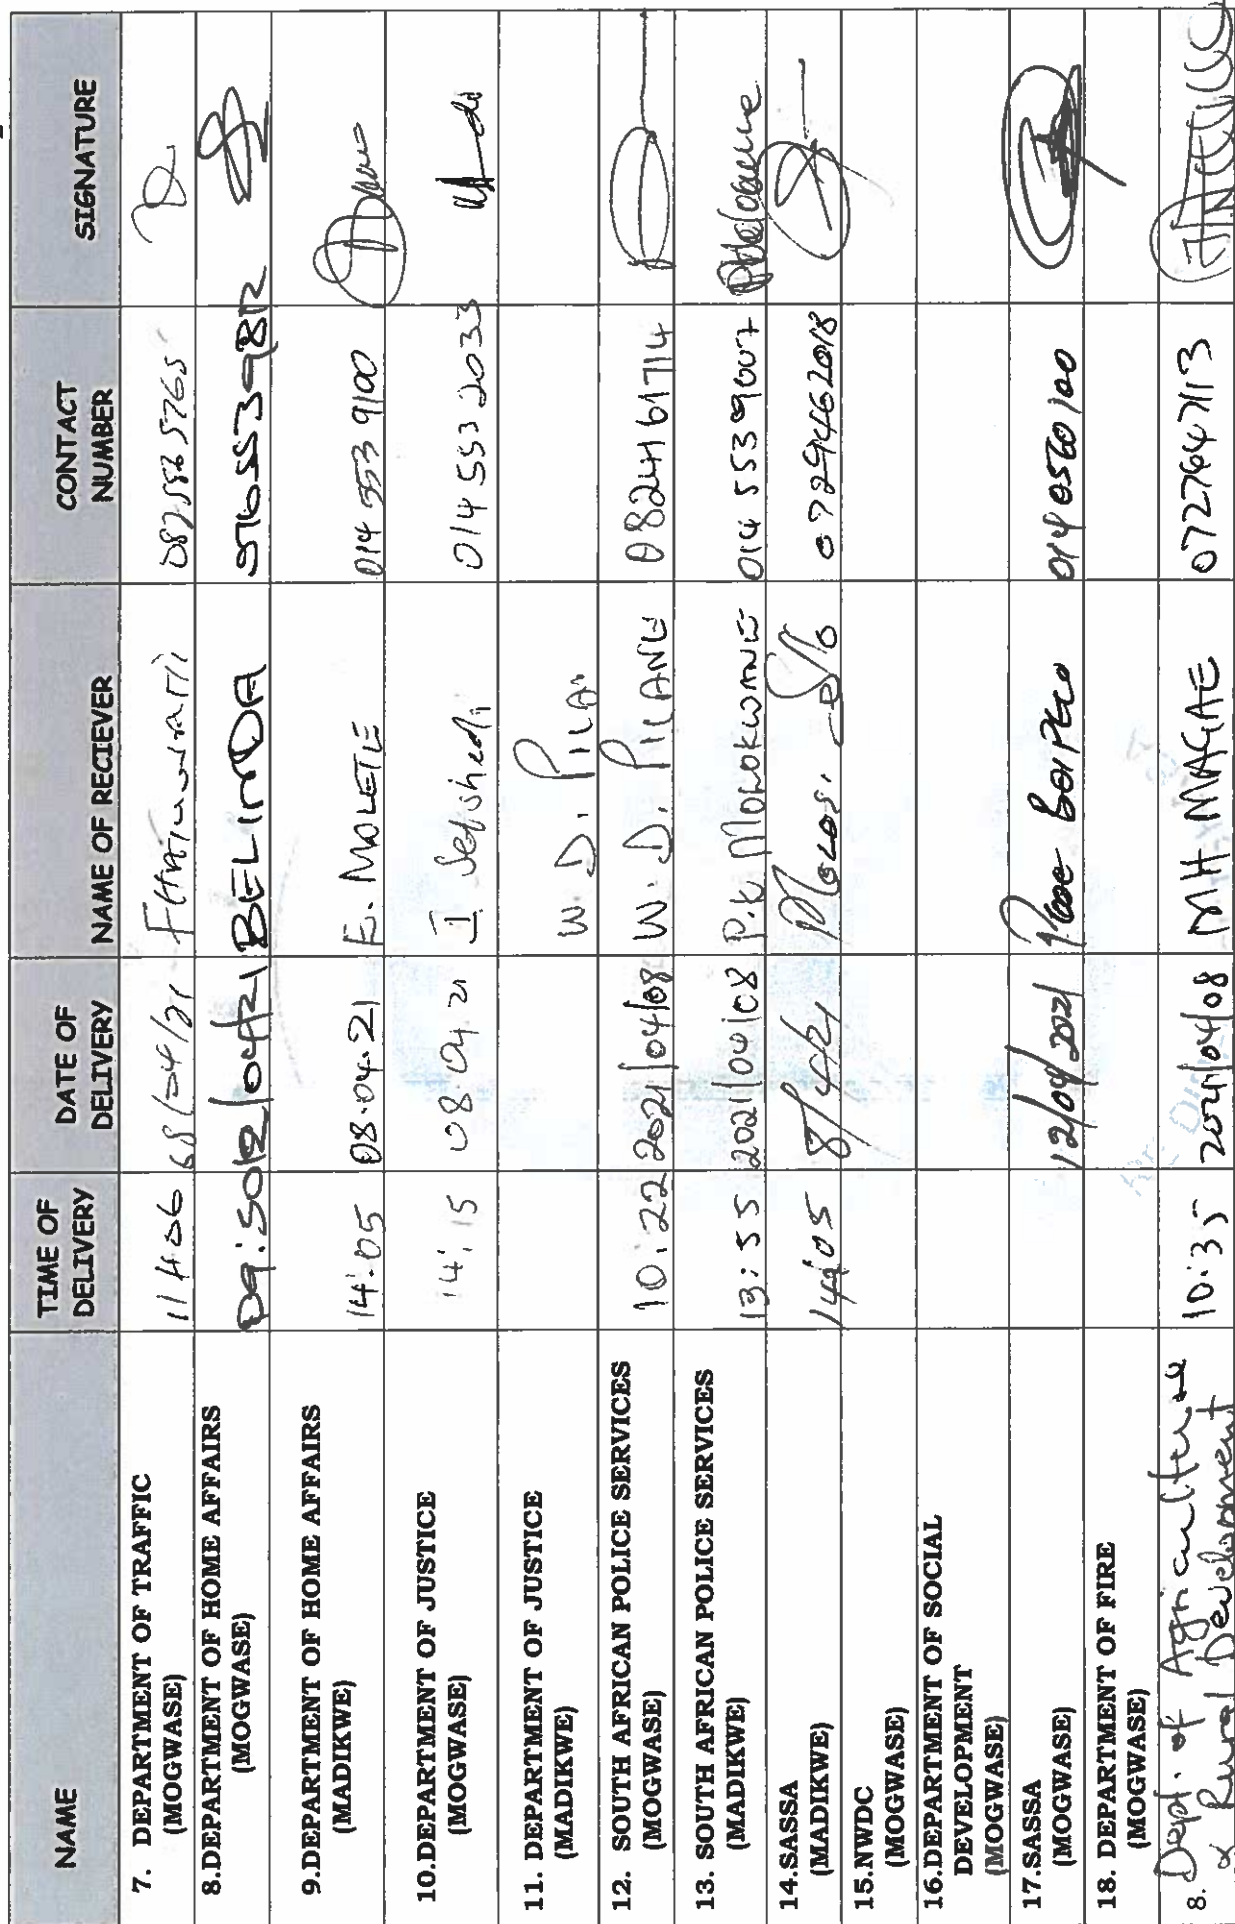 NAME TIME OF DELIVERY DATE OF DELIVERY NAME OF RECIEVER CONTACT NUMBER SIGNATURE
7. DEPARTMENT OF TRAFFIC
(MOGWASE) 11H06 08/04/21 082 5865765
8.DEPARTMENT OF HOME AFFAIRS
(MOGWASE) 09:50 12/04/21 BELINDA
9.DEPARTMENT OF HOME AFFAIRS
(MADIKWE) 14:05 08.04.21 E. MOLETE 014 553 9100
10.DEPARTMENT OF JUSTICE
(MOGWASE) 14:15 08.04.21 I 014 553 2033
11. DEPARTMENT OF JUSTICE
(MADIKWE) W. D. PILA
12. SOUTH AFRICAN POLICE SERVICES
(MOGWASE) 10:22 2021/04/08 W. D. PILANE 0824161714
13. SOUTH AFRICAN POLICE SERVICES
(MADIKWE) 13:55 2021/04/08 P.K MOLOKWANE 014 5539007
14.SASSA
(MADIKWE) 14:05 8/4/21 0729462018
15.NWDC
(MOGWASE)
16.DEPARTMENT OF SOCIAL
DEVELOPMENT
(MOGWASE)
17.SASSA
(MOGWASE) 12/04/2021 014 0560100
18. DEPARTMENT OF FIRE
(MOGWASE)
8. Dept. of Agriculture
& Rural Development 10:35 2021/04/08 MH MAGAE 0727647113